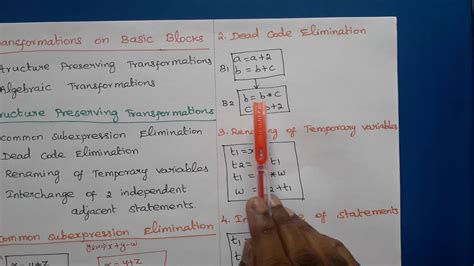 ansformations on Basic Blocks
tructure Preserving Transformations
lgebraic Transformations
tructure Preserving Transformations
ommon Subexpression Elimination
Dead Code Elimination
Renaming of Temporary variables
Interchange of 2 independent
adjacent statements.
Common Subexpression Elimination
2. Dead Code Elimination
B1
a = a+2
b = b+c
B2
b = b * c
C +2
3. Renaming of Temporary variables
t1 =
t2 = t1
t1 = *w
w = 2+t1
4. In e of statements
t1 =